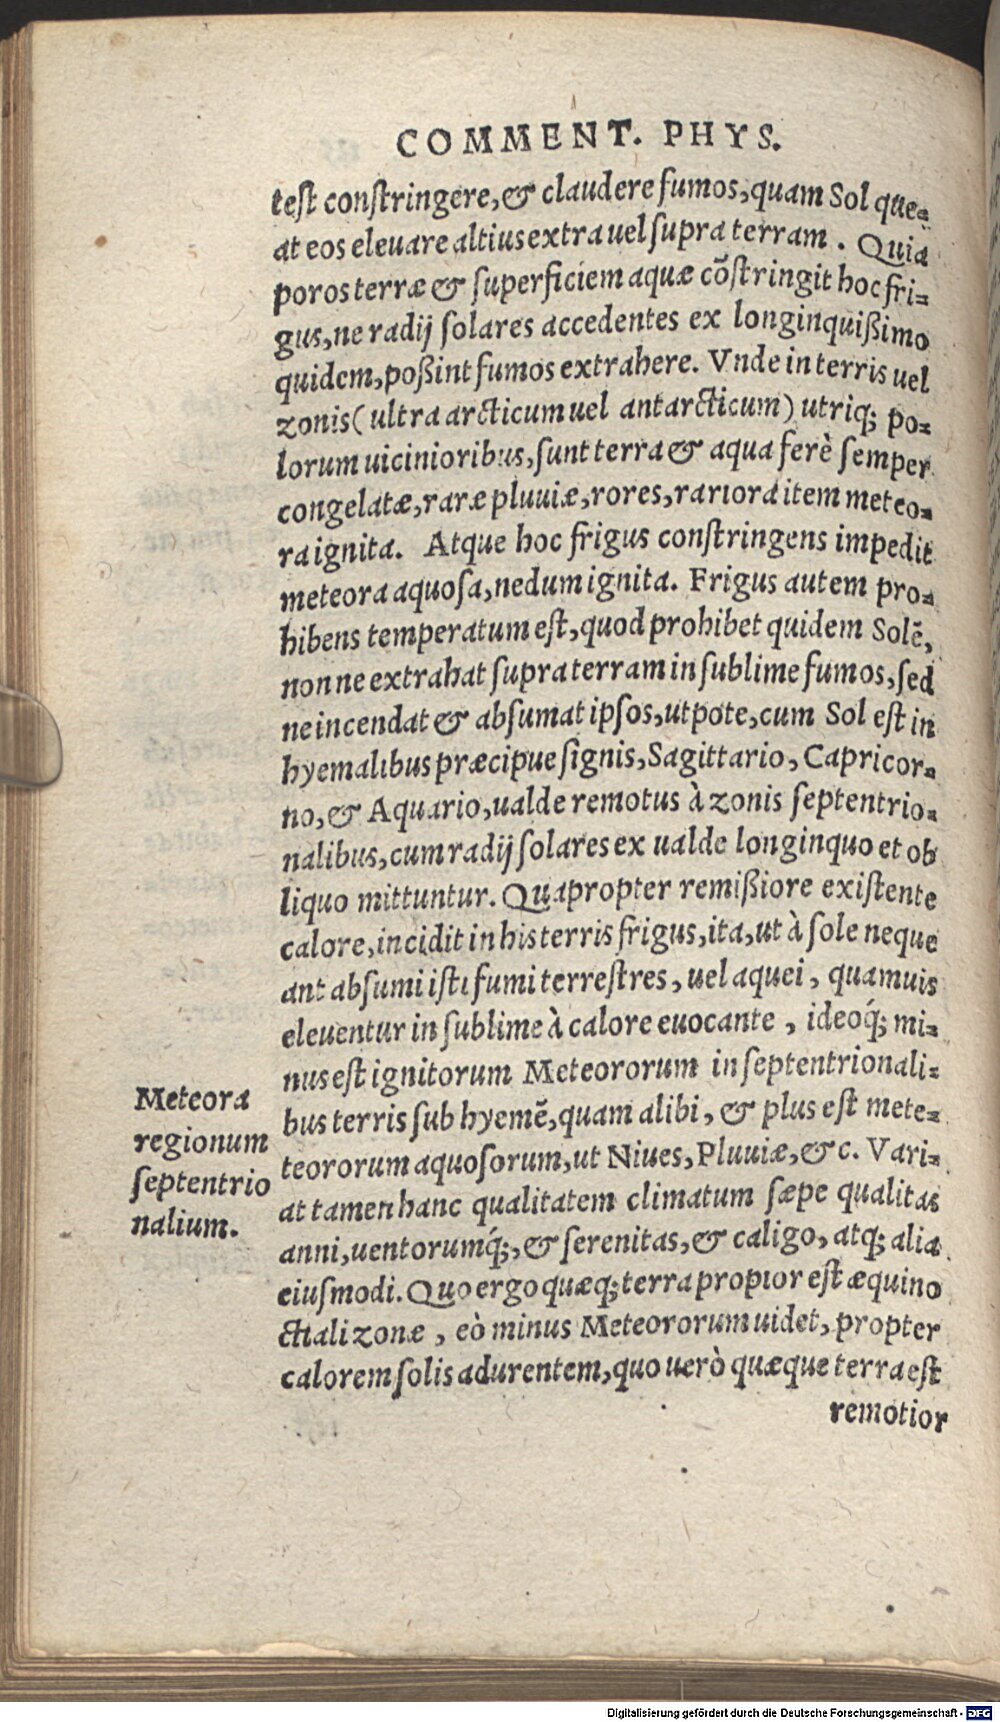 COMMENT. PHYS.
test constringere, & claudere fumos, quam Sol que-
at eos eleuare altius extra uel supra terram. Quia
poros terræ & superficiem aquæ cōstringit hoc fri-
gus, ne radij solares accedentes ex longinquißimo
quidem, poßint fumos extrahere. Vnde in terris uel
zonis (ultra arcticum uel antarcticum) utriq; po-
lorum uicinioribus, sunt terra & aqua ferè semper
congelatæ, raræ pluuiæ, rores, rariora item meteo-
ra ignita. Atque hoc frigus constringens impedit
meteora aquosa, nedum ignita. Frigus autem pro-
hibens temperatum est, quod prohibet quidem Solē,
non ne extrahat supra terram in sublime fumos, sed
ne incendat & absumat ipsos, utpote, cum Sol est in
hyemalibus præcipue signis, Sagittario, Capricor-
no, & Aquario, ualde remotus à zonis septentrio-
nalibus, cum radij solares ex ualde longinquo et ob
liquo mittuntur. Quapropter remißiore existente
calore, incidit in his terris frigus, ita, ut à sole neque
ant absumi isti fumi terrestres, uel aquei, quamuis
eleuentur in sublime à calore euocante, ideoq́; mi-
nus est ignitorum Meteororum in septentrionali-
bus terris sub hyemē, quam alibi, & plus est mete-
teororum aquosorum, ut Niues, Pluuiæ, &c. Vari-
at tamen hanc qualitatem climatum sæpe qualitas
anni, uentorumq́;, & serenitas, & caligo, atq; alia
eiusmodi. Quo ergo quæq; terra propior est æquino
ctiali zonæ, eò minus Meteororum uidet, propter
calorem solis adurentem, quo uerò quæque terra est
remotior
Meteora
regionum
septentrio
nalium.
Digitalisierung gefördert durch die Deutsche Forschungsgemeinschaft - DFG